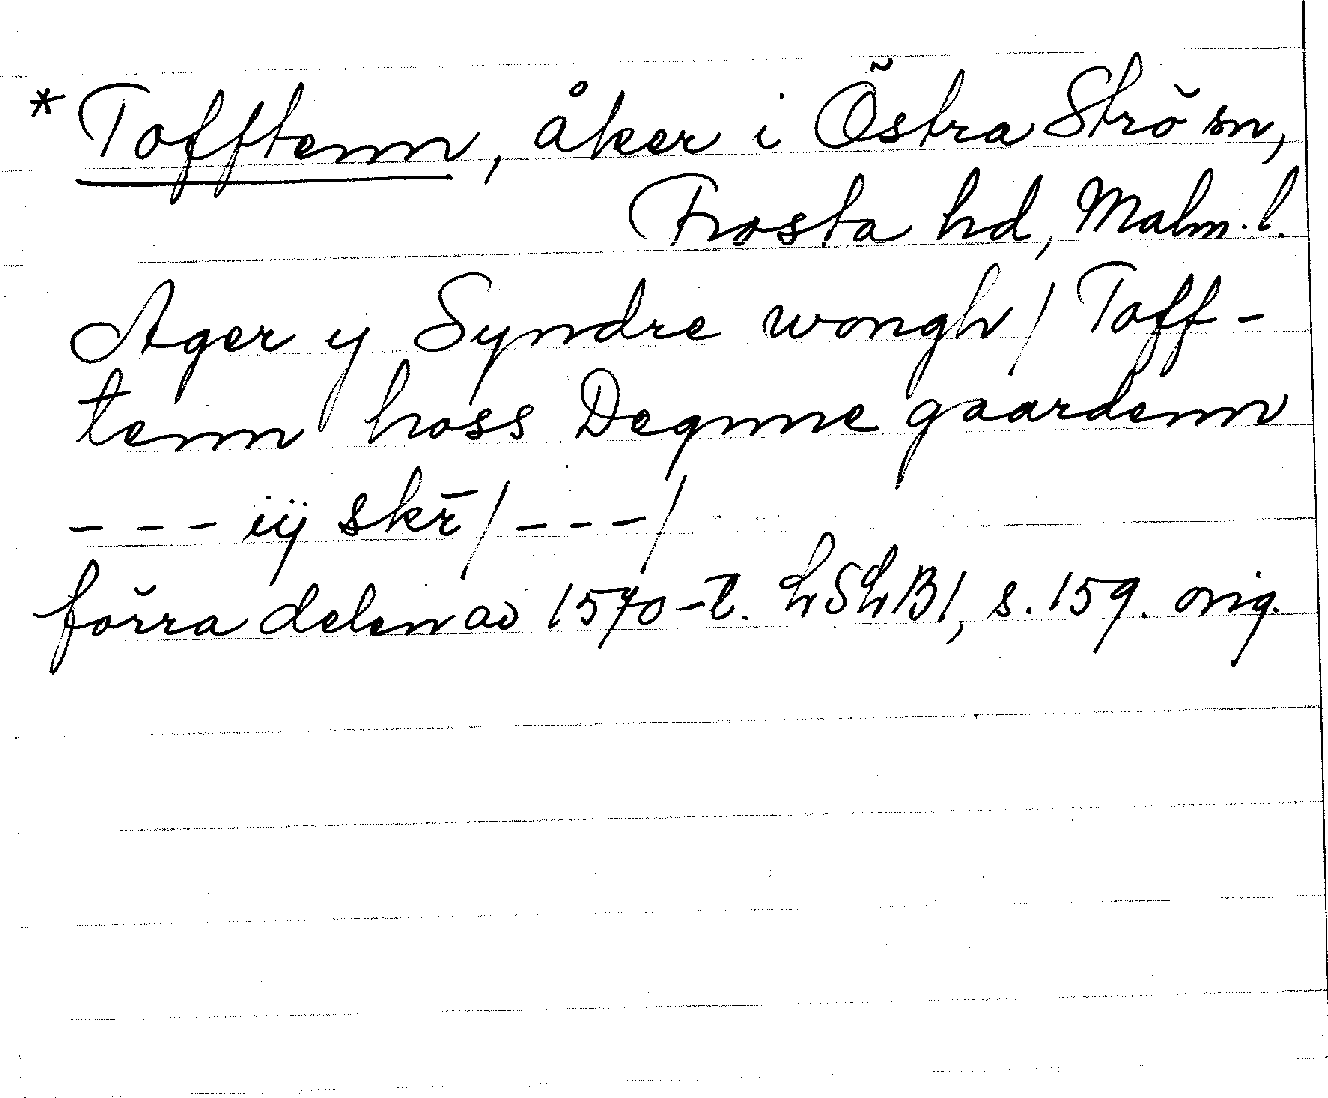 *Tofftenn, åker i Östra Strö sn,
Frosta hd, Malm. l.
Ager y Syndre wongh / Toff-
tenn hoss Degnne gaardenn
- - - iij skr̄ / - - - /
förra delen av 1570-t. LSLB1, s. 159. orig.